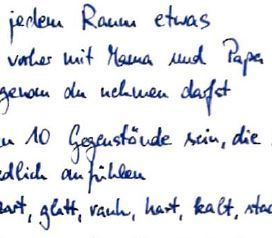 jedem Raum etwas
vorher mit Mama und Papa
genau du nehmen darfst
10 Gegenstände sein, die
dlich anfühlen
zart, glatt, rauh, hart, kalt, stac